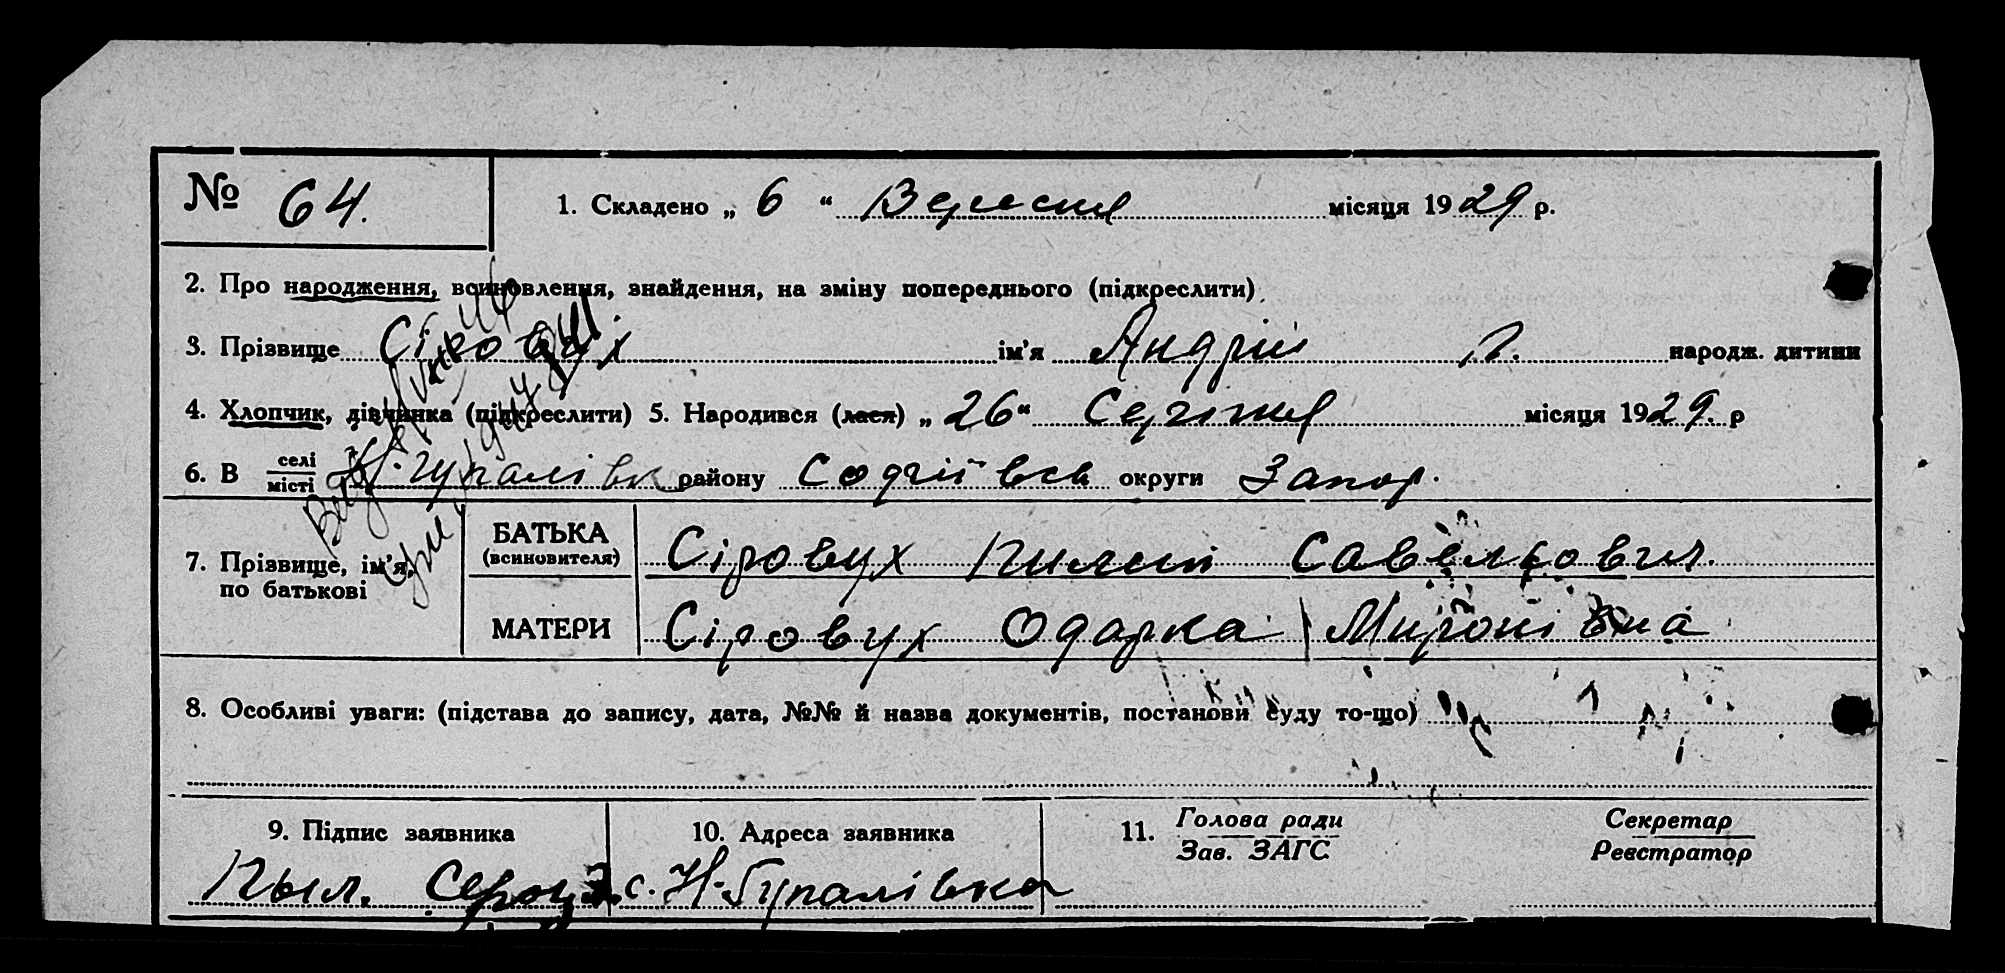 № 64.
1. Складено „ 6 “ Вересня місяця 1929 р.
2. Про народження, всиновлення, знайдення, на зміну попереднього (підкреслити)
3. Прізвище Сіровух ім’я Андрій П. народж. дитини
4. Хлопчик, дівчинка (підкреслити) 5. Народився (лася) „ 26 “ Серпня місяця 1929. р
6. В селі місті Н. Гупалівк району Софіївськ округи Запор.
7. Прізвище, ім’я, по батькові
БАТЬКА (всиновителя) Сіровух Пилип Савельович.
МАТЕРИ Сіровух Одарка Миронівна
8. Особливі уваги: (підстава до запису, дата, №№ й назва документів, постанови суду то-що)
9. Підпис заявника
10. Адреса заявника
11. Голова ради Зав. ЗАГС
Секретар Реєстратор
Пыл. с. Н-Гупалівка